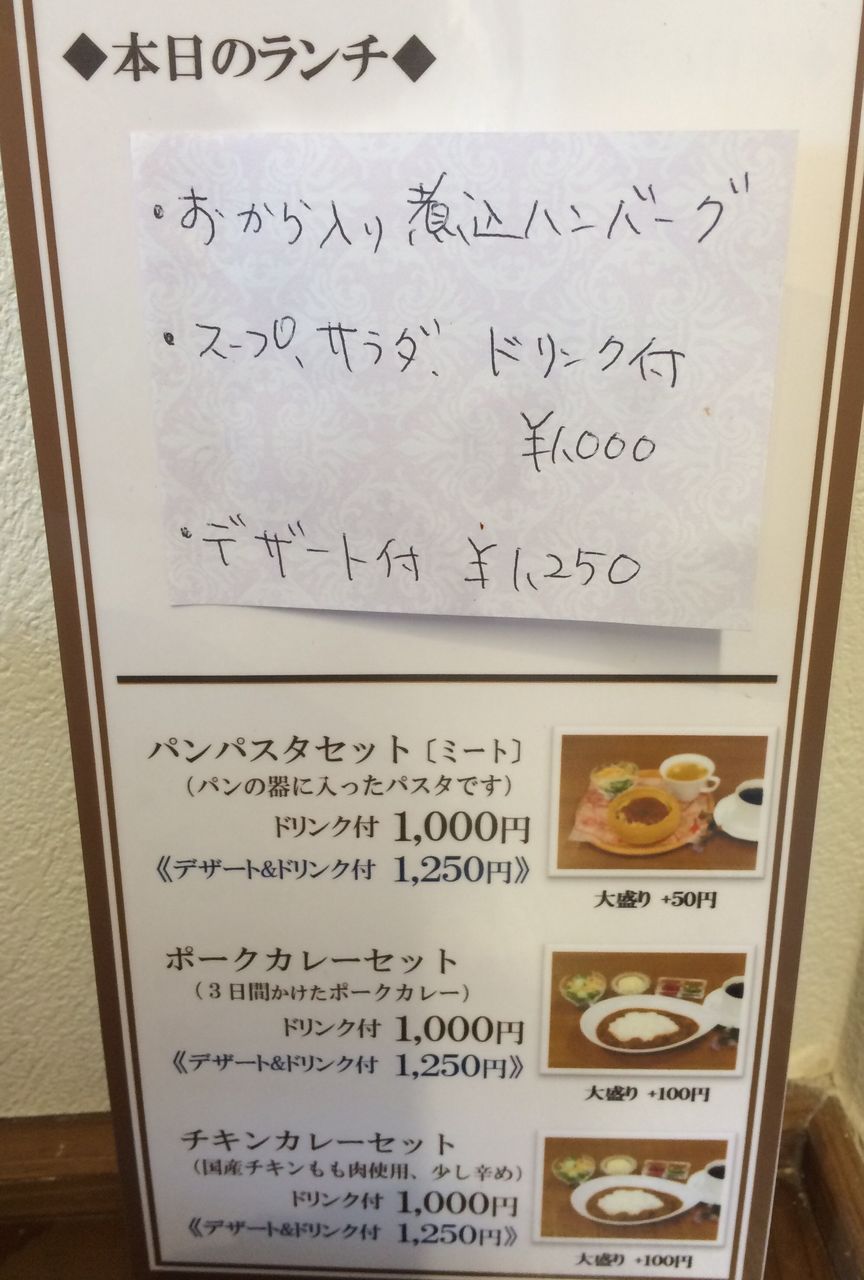 ◆本日のランチ◆
・おから入り煮込ハンバーグ
・スープ、サラダ、ドリンク付
¥1,000
・デザート付 ¥1,250
パンパスタセット〔ミート〕
（パンの器に入ったパスタです）
ドリンク付 1,000円
《デザート&ドリンク付 1,250円》
大盛り +50円
ポークカレーセット
（３日間かけたポークカレー）
ドリンク付 1,000円
《デザート&ドリンク付 1,250円》
大盛り +100円
チキンカレーセット
（国産チキンもも肉使用、少し辛め）
ドリンク付 1,000円
《デザート&ドリンク付 1,250円》
大盛り +100円